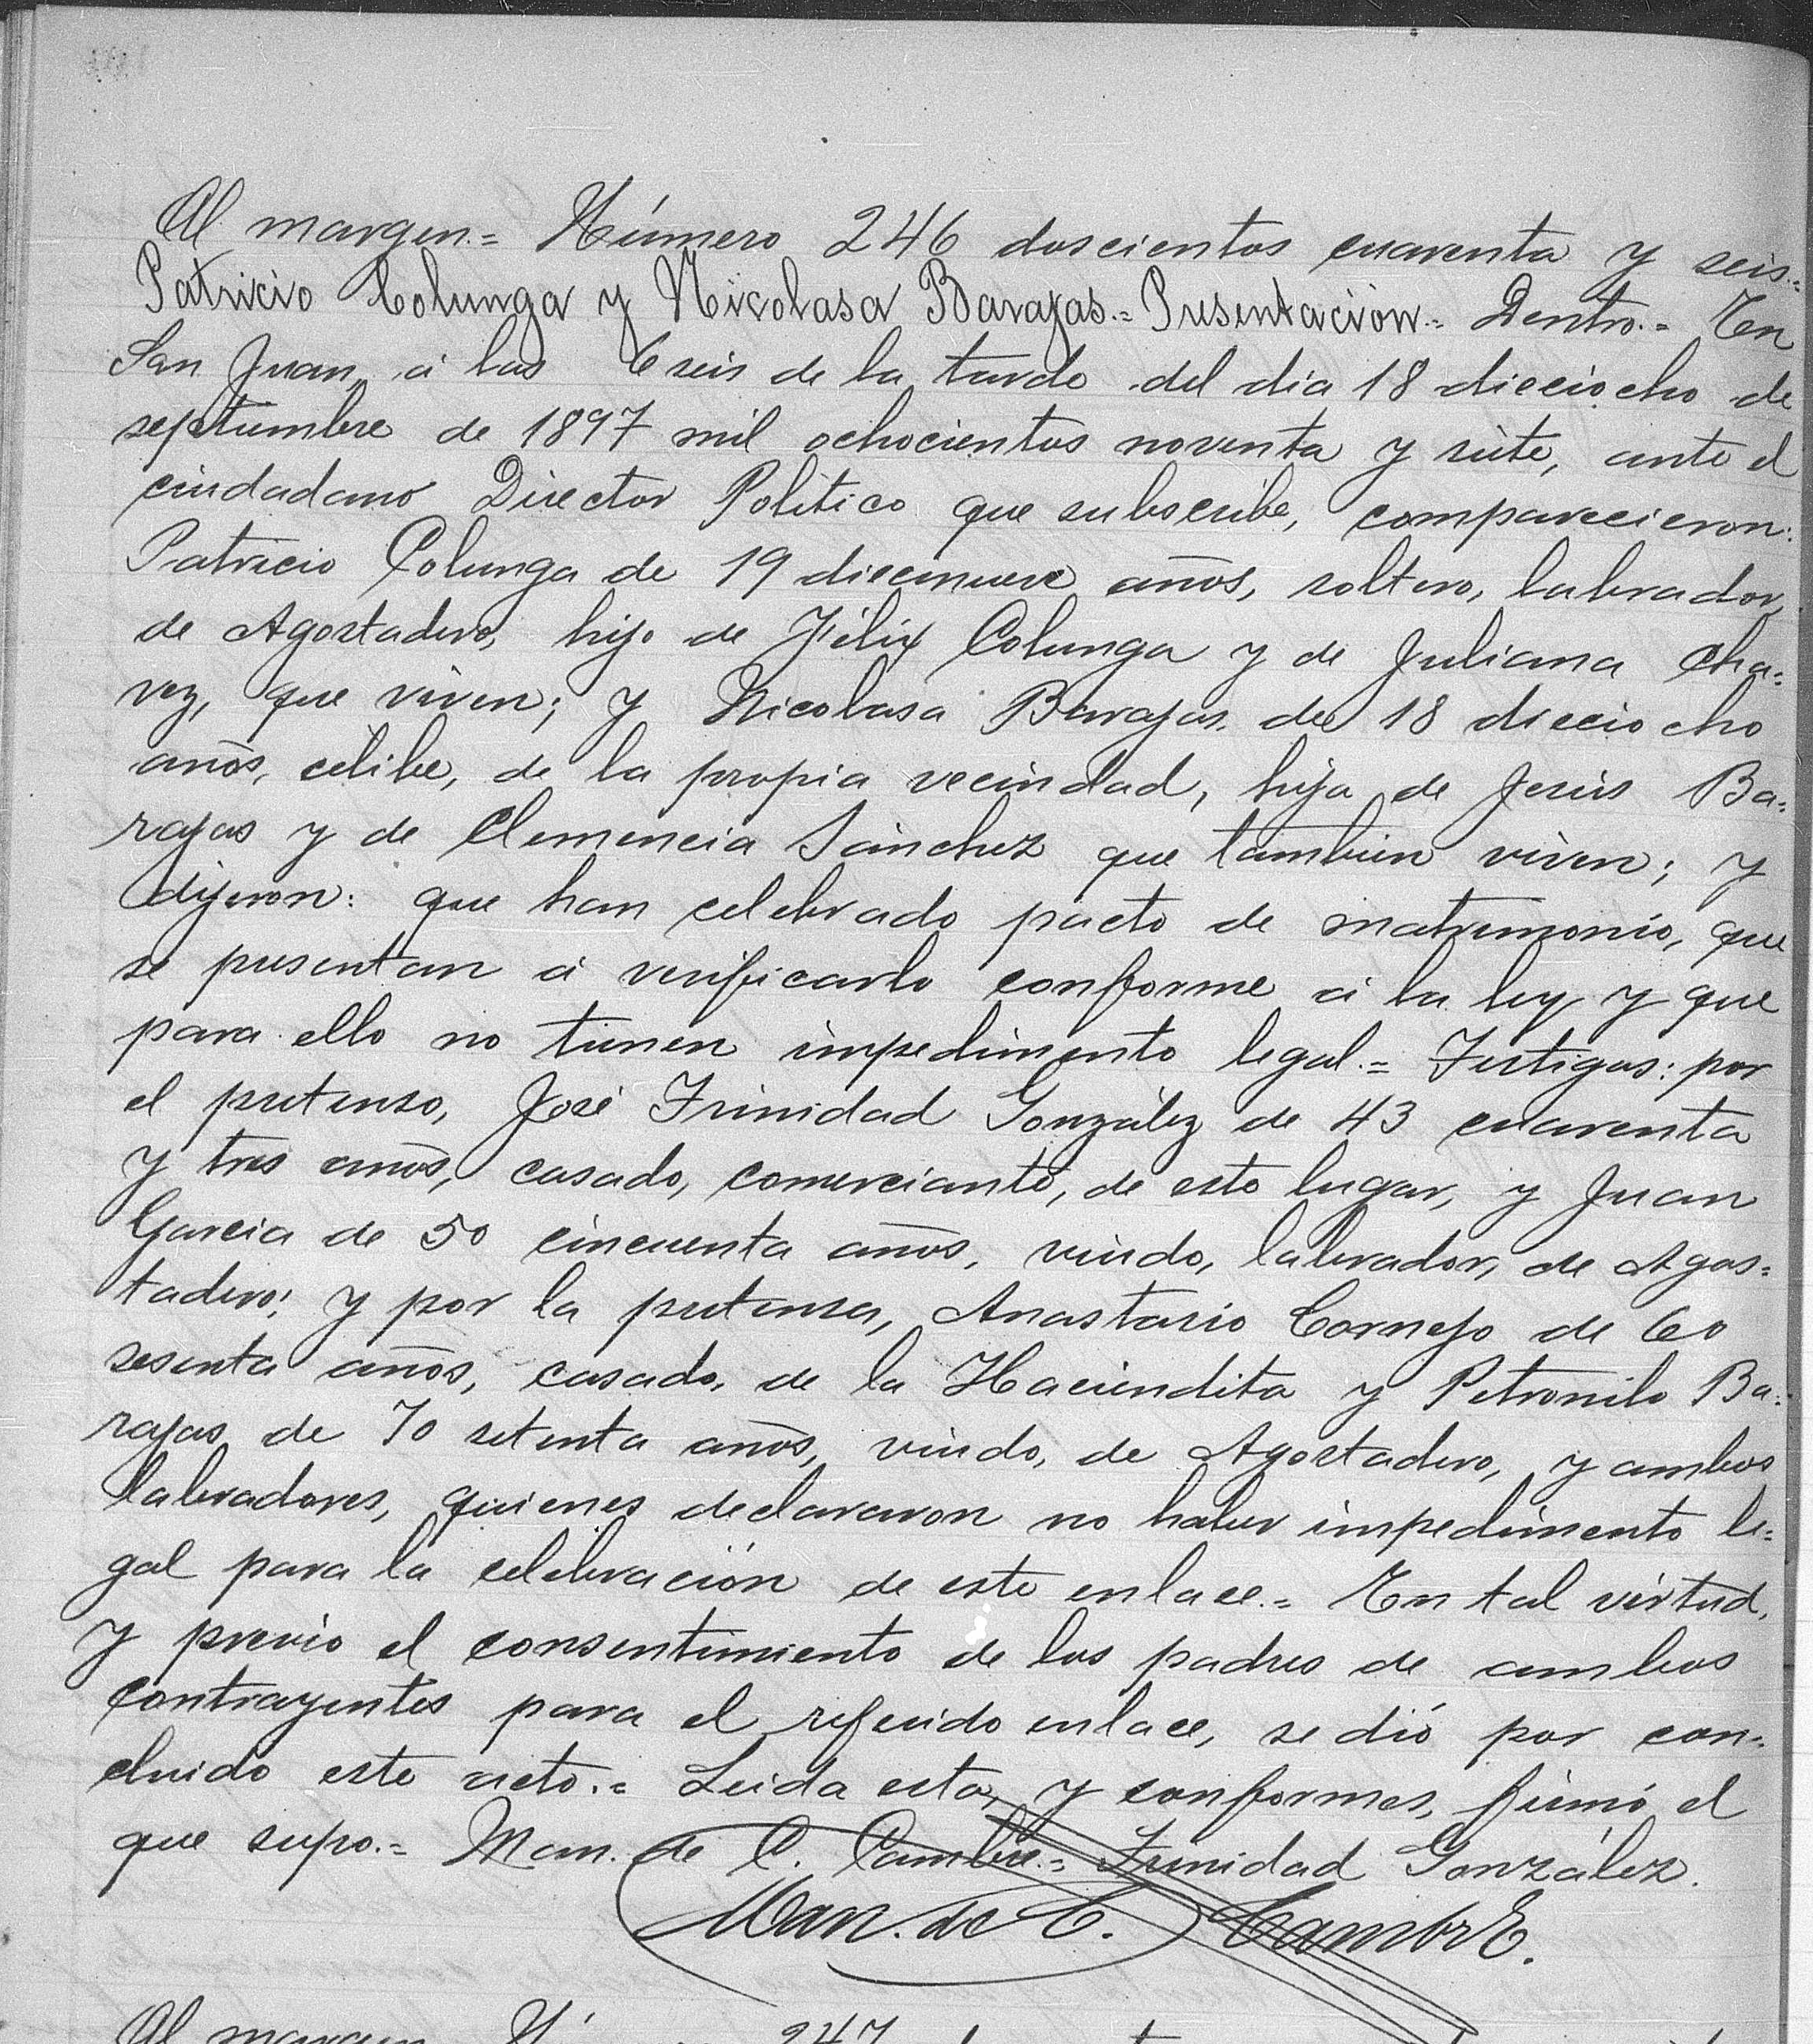 Al margen.= Número 246 doscientos cuarenta y seis.=
Patricio Colunga y Nicolasa Barajas.= Presentación.= Dentro.= En
San Juan, á las 6 seis de la tarde del día 18 dieciocho de
septiembre de 1897 mil ochocientos noventa y siete, ante el
ciudadano Director Político que subscribe, comparecieron:
Patricio Colunga de 19 diecinueve años, soltero, labrador,
de Agostadero, hijo de Félix Colunga y de Juliana Cha=
vez, que viven; y Nicolasa Barajas, de 18 dieciocho
años, célibe, de la propia vecindad, hija de Jesús Ba=
rajas y de Clemencia Sánchez que también viven; y
dijeron: que han celebrado pacto de matrimonio, que
se presentan á verificarlo conforme á la ley y que
para ello no tienen impedimento legal.= Testigos: por
el pretenso, José Trinidad González de 43 cuarenta
y tres años, casado, comerciante, de este lugar, y Juan
García de 50 cincuenta años, viudo, labrador, de Agos=
tadero; y por la pretensa, Anastasio Cornejo de 60
sesenta años, casado, de la Haciendita y Petronilo Ba=
rajas de 70 setenta años, viudo, de Agostadero, y ambos
labradores, quienes declararon no haber impedimento le=
gal para la celebración de este enlace.= En tal virtud,
y previo el consentimiento de los padres de ambos
contrayentes para el referido enlace, se dió por con=
cluido este acto.= Leida esta, y conformes, firmó el
que supo.= Man. de C. Cambre.= Trinidad González.
Man. de C. Cambre.
Al margen 247